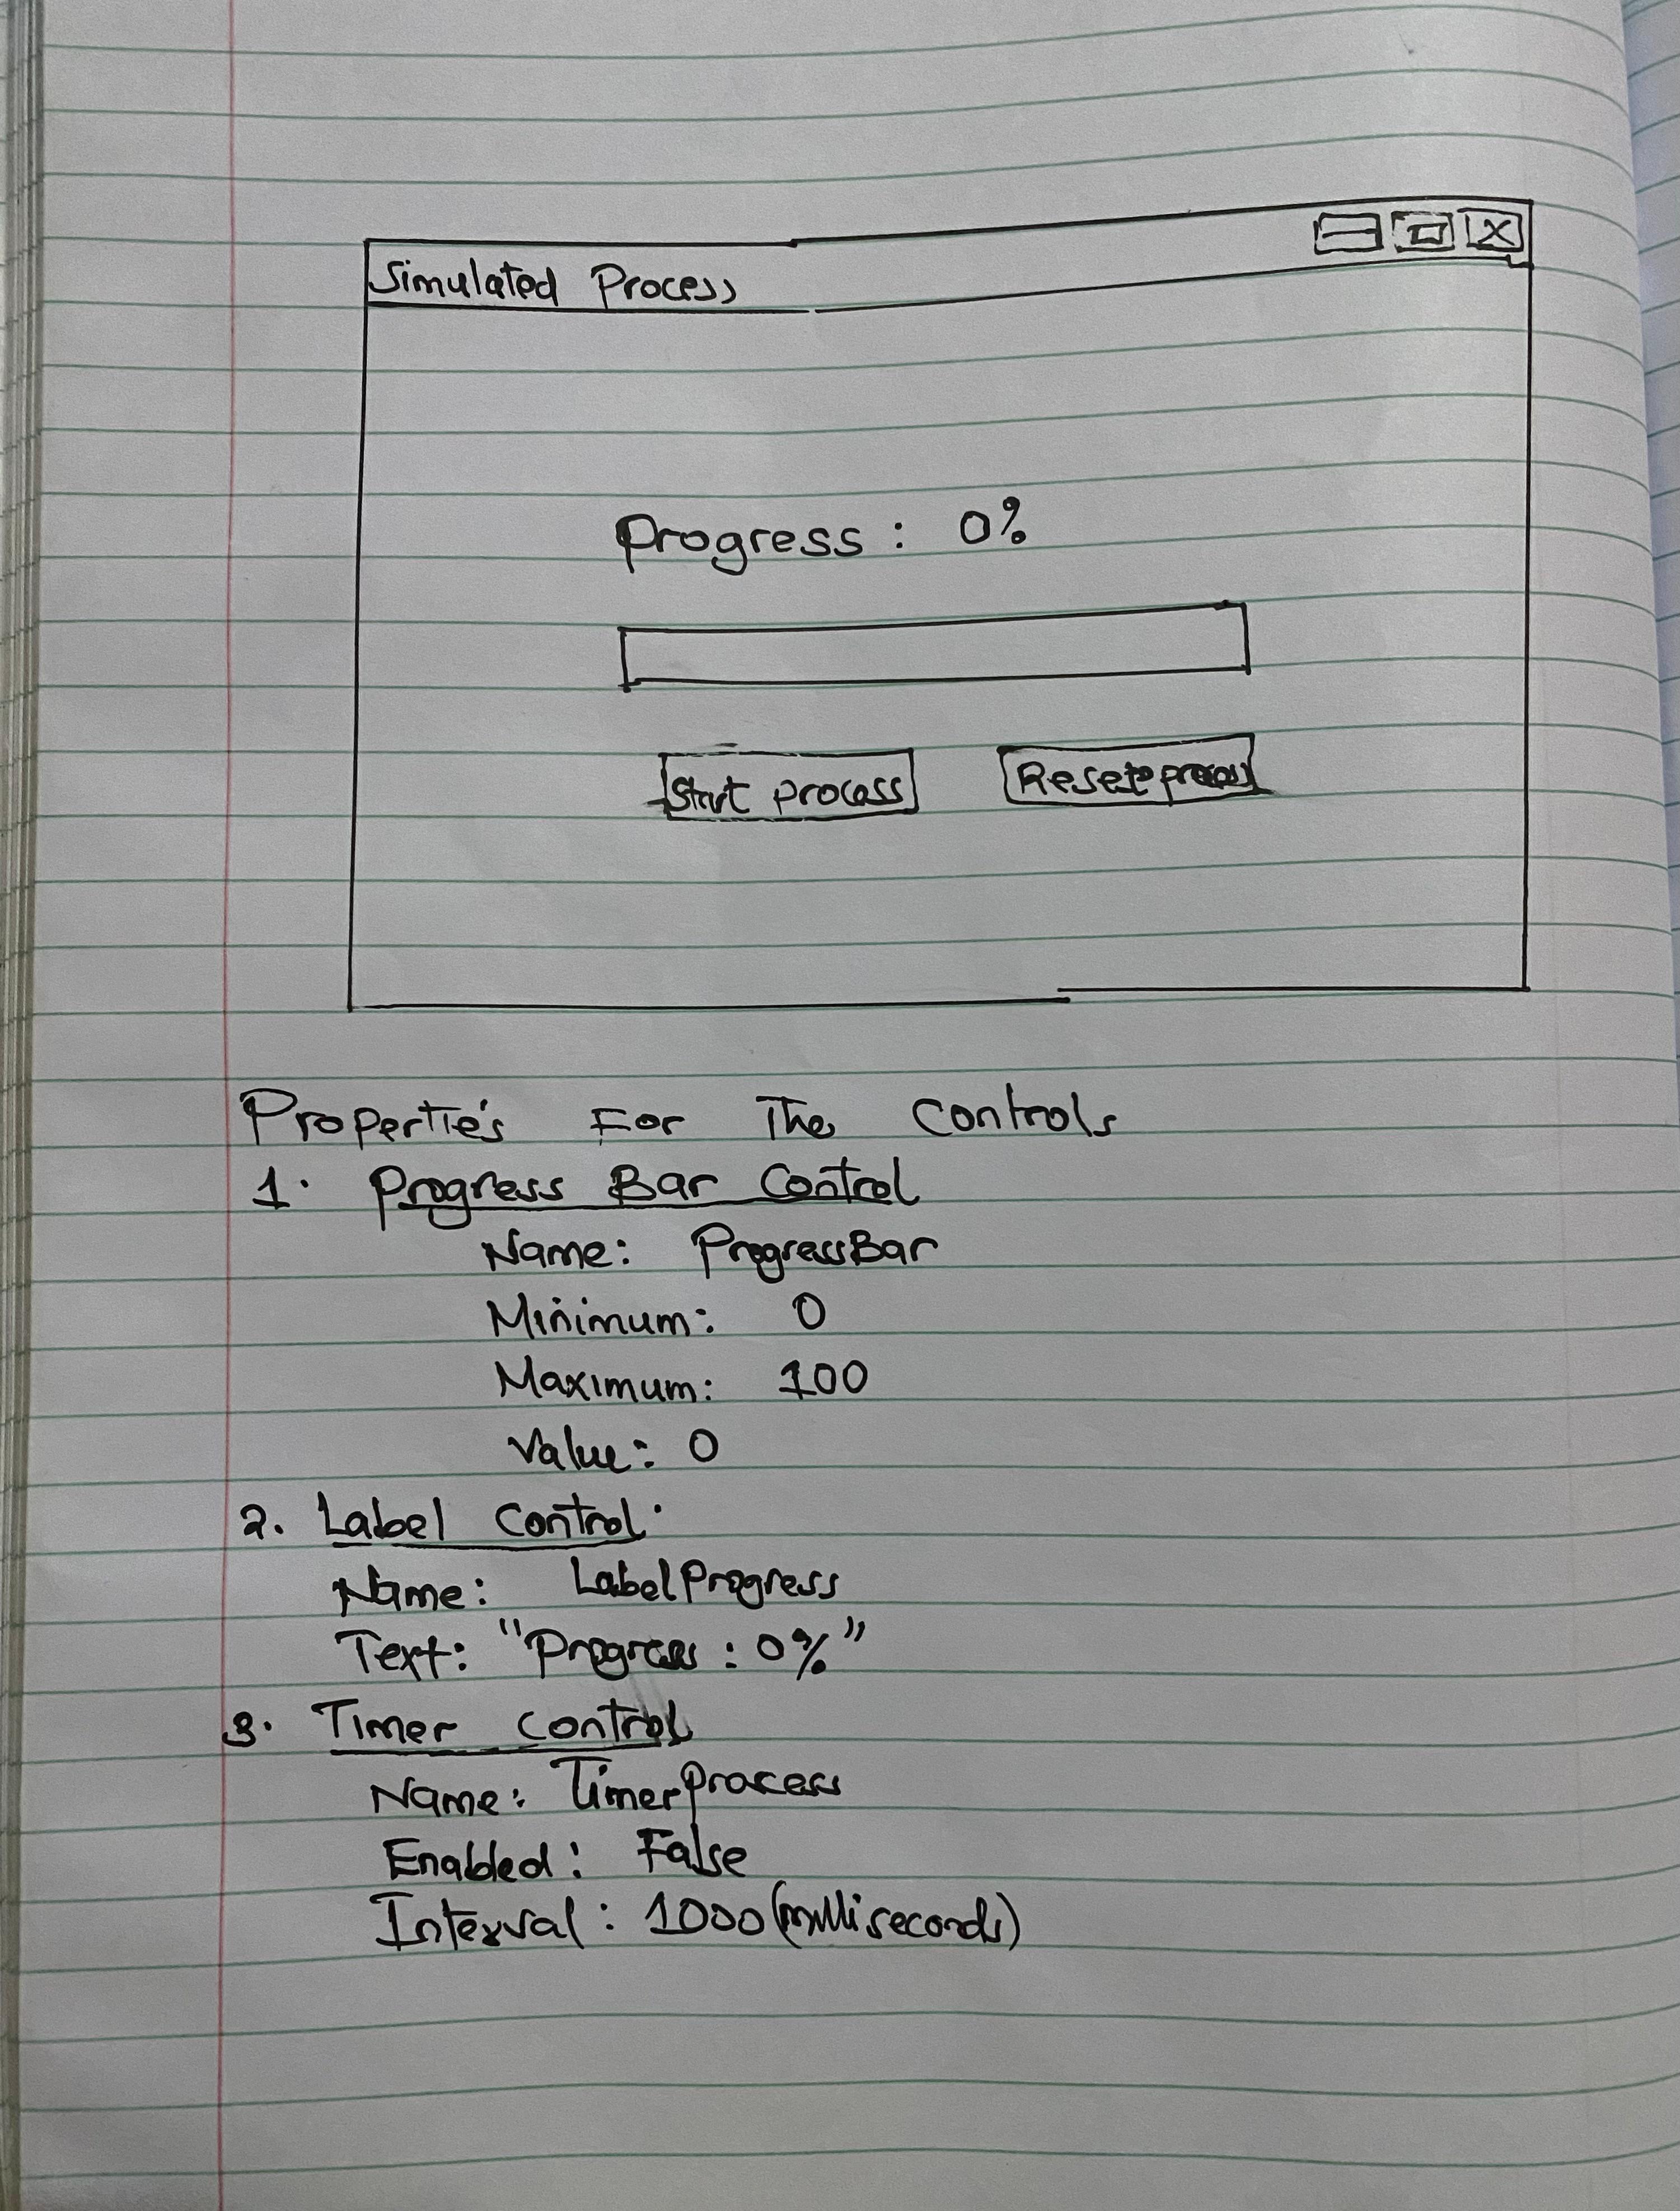 Simulated Process
Progress : 0%
Start process
Reset process
Propertie's For The Controls
1. Progress Bar Control
Name: ProgressBar
Minimum: 0
Maximum: 100
Value: 0
2. Label Control:
Name: LabelProgress
Text: "Progress : 0%"
3. Timer Control
Name: TimerProcess
Enabled: False
Interval : 1000 (milliseconds)